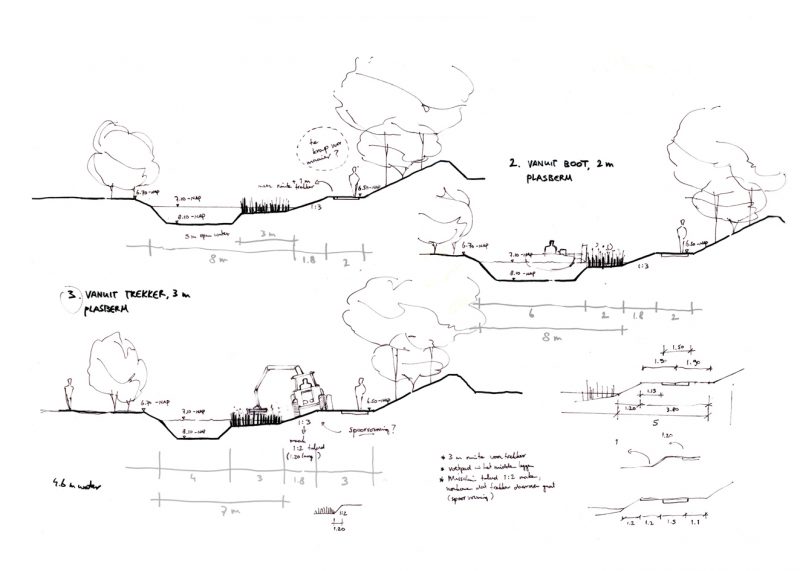 te
krap voor
6.70 -NAP
7.10 -NAP
8.10 -NAP
5 m open water
3 m
8 m
1.8
2
1:3
6.50 -NAP
2. VANUIT BOOT, 2 m
PLASBERM
6.70 -NAP
7.10 -NAP
8.10 -NAP
6.50 -NAP
1:3
6
2
1.8
2
8 m
3. VANUIT TREKKER, 3 m
PLASBERM
6.70 -NAP
7.10 -NAP
8.10 -NAP
6.50 -NAP
1:3
1:2 talud
(1.20 lang)
spoorvorming?
4
3
1.8
3
7 m
4.6 m water
1:2
1.20
1.50
1.90
1.90
1.20
3.80
5
* 3 m ruimte voor trekker
* voetpad in het midden leggen
* Misschien talud 1:2 maken,
voorkomen dat trekker daarover gaat
(spoorvorming)
?
1.20
1.2
1.2
1.5
1.1